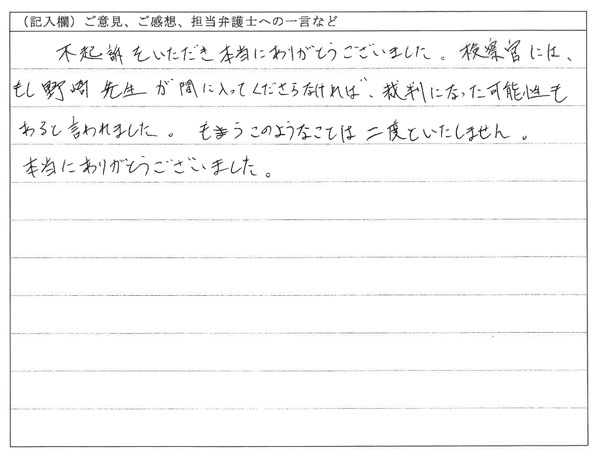 （記入欄）ご意見、ご感想、担当弁護士への一言など
不起訴をいただき本当にありがとうございました。検察官には、
もし野崎先生が間に入ってくださらなければ、裁判になった可能性も
あると言われました。もうこのようなことは二度といたしません。
本当にありがとうございました。